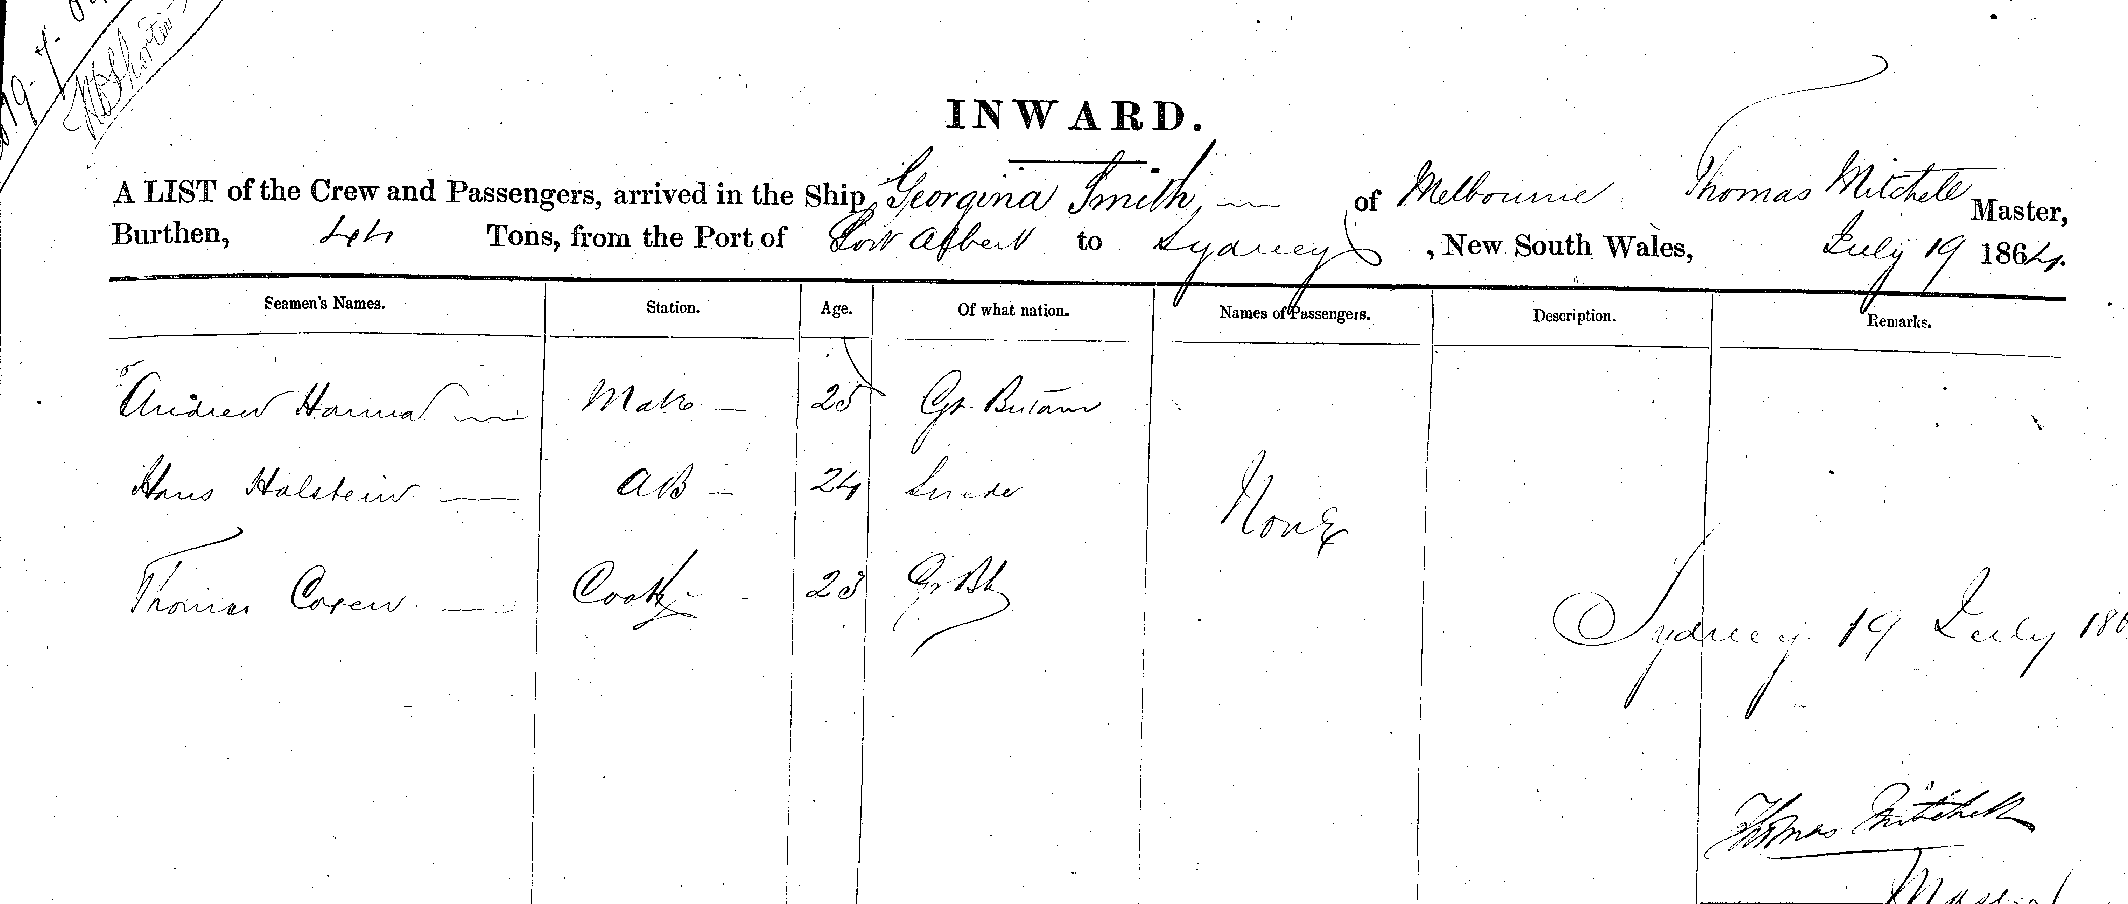 19. 7. 
INWARD.
A LIST of the Crew and Passengers, arrived in the Ship Georgina Smith, — of Melbourne Thomas Mitchell Master,
Burthen, 44 Tons, from the Port of Port Albert to Sydney, New South Wales, July 19 1864.
Seamen's Names. Station. Age. Of what nation. Names of Passengers. Description. Remarks.
Andrew Hanna — Mate — 25 Gt Britain
Hans Halstein — AB — 24 Swede
None
Thomas Coxen — Cook — 23 Gt Bt
Sydney 19 July 186
Thomas Mitchell
Master